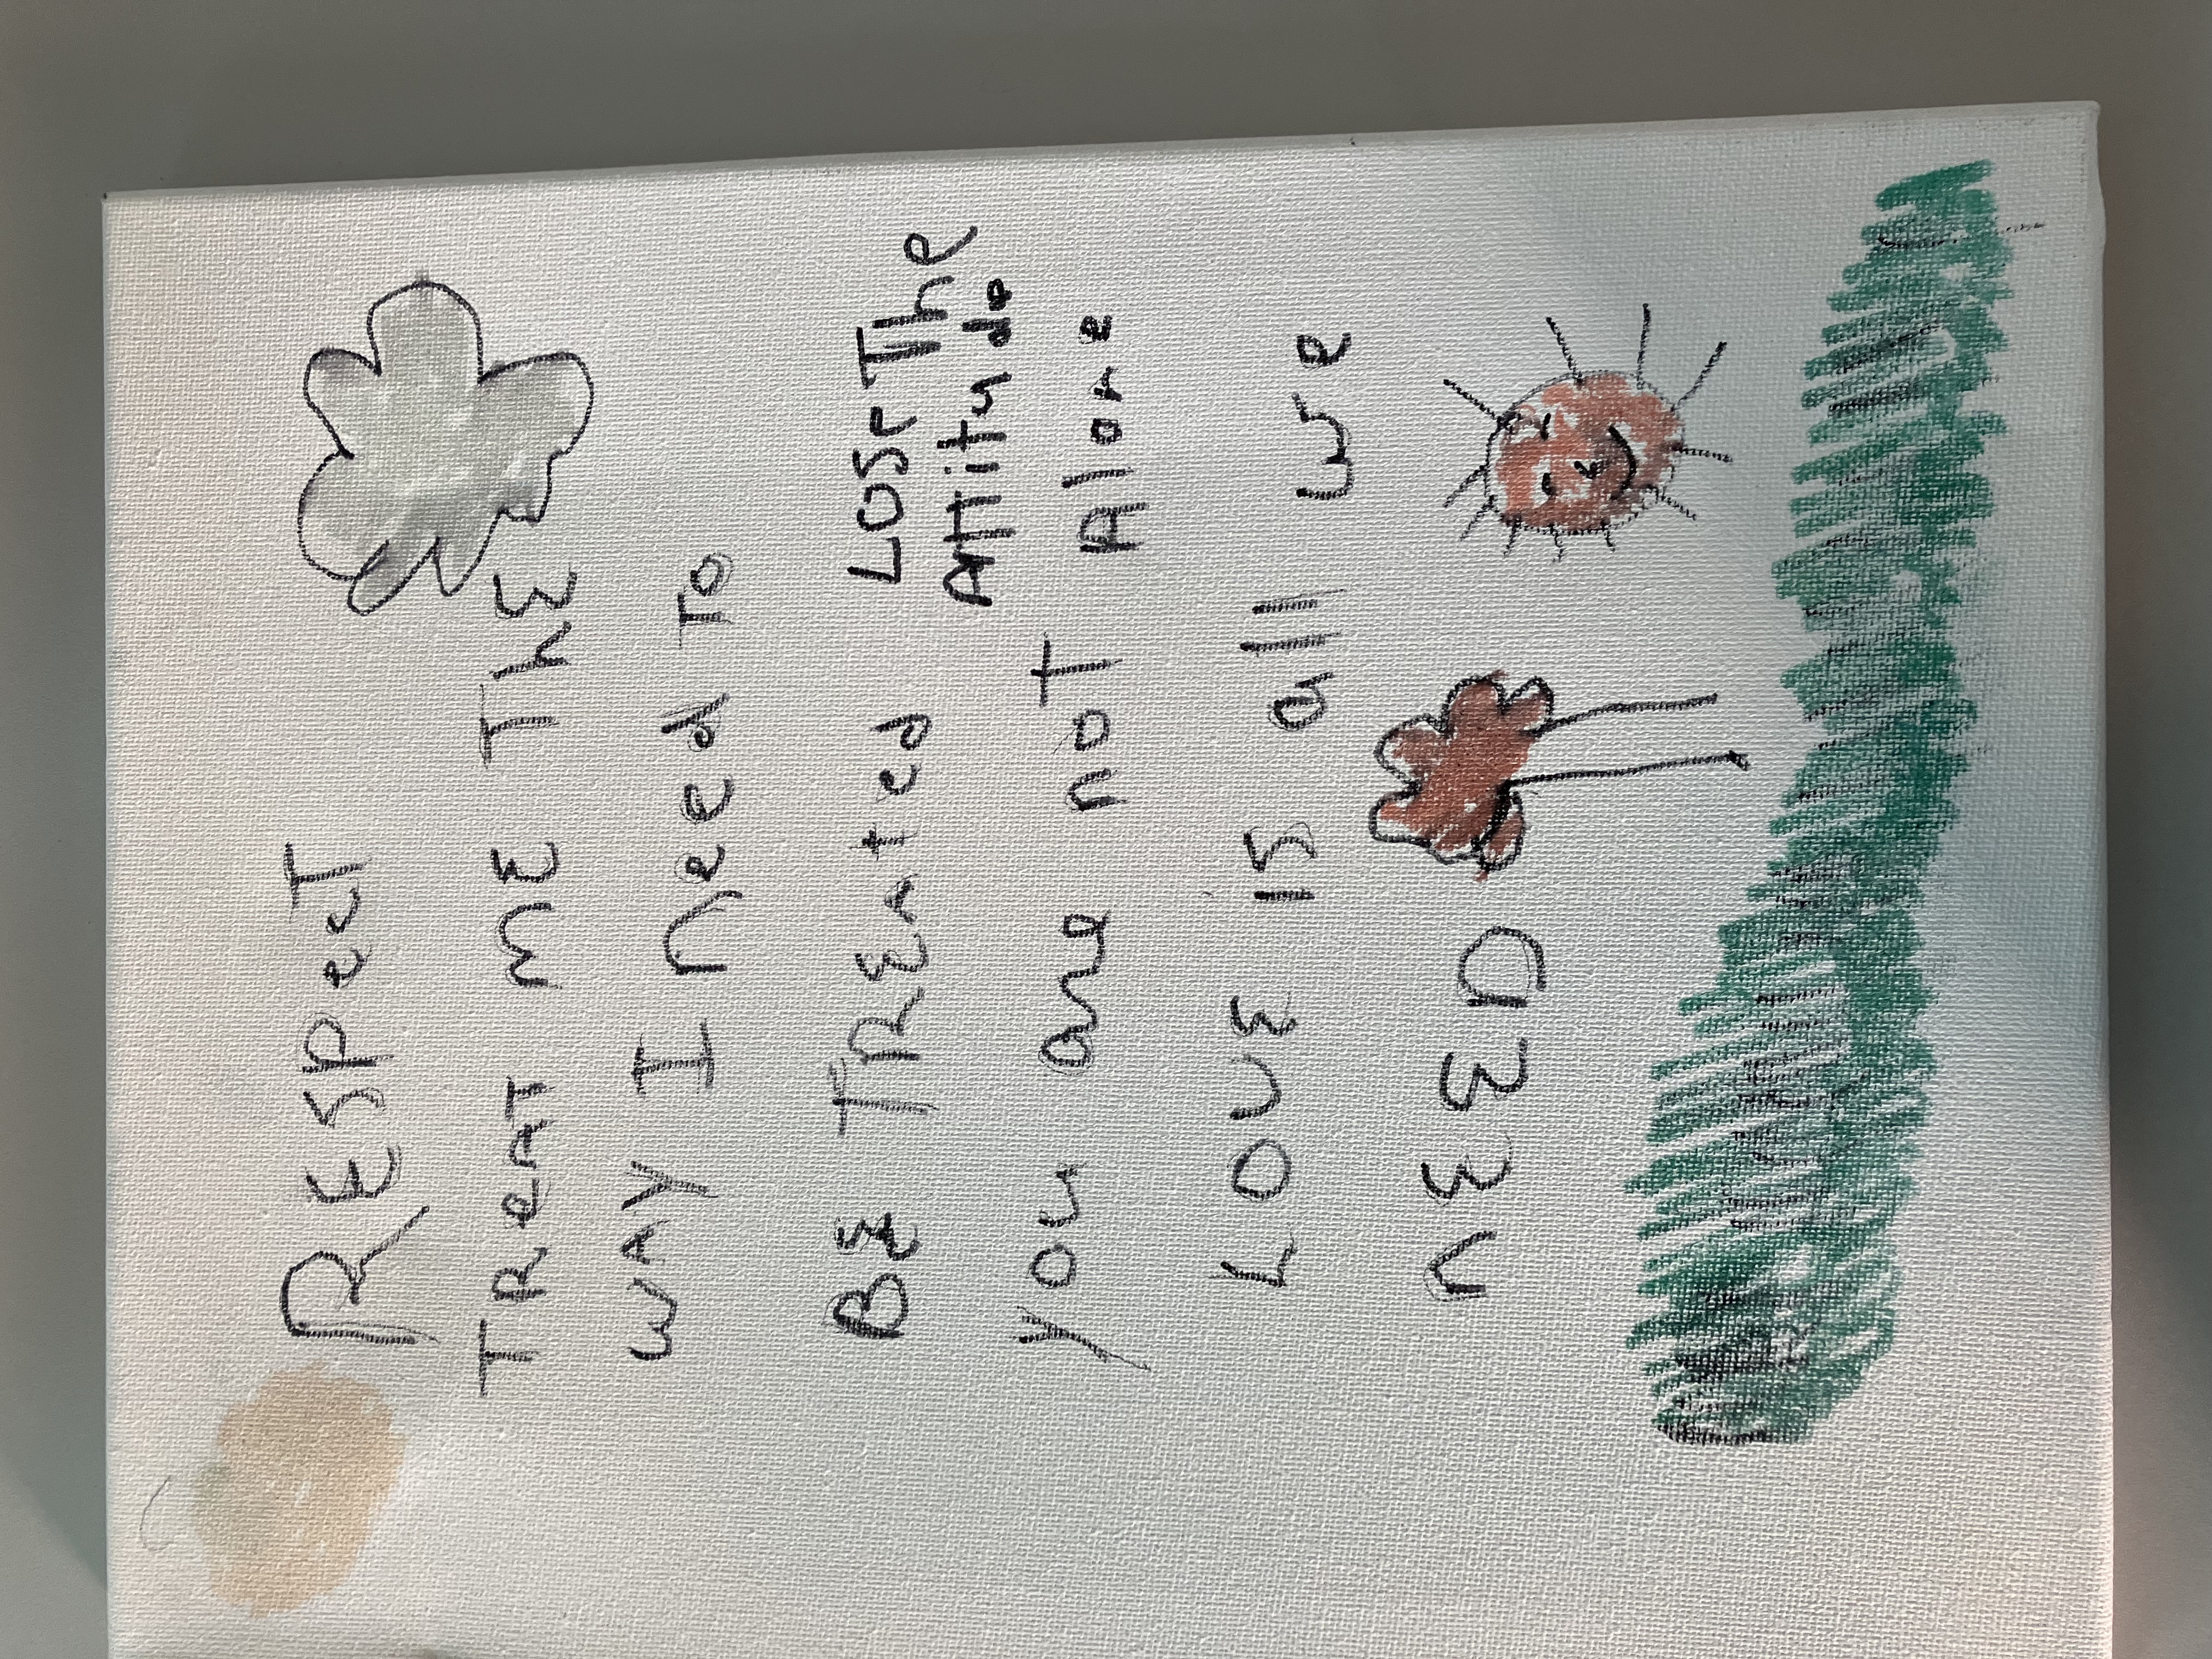 RESPecT
TReAT ME ThE
WAY I need To
BE TREAted
LOSe The
Attitude
you are not Alone
LOVE is all we
nEED